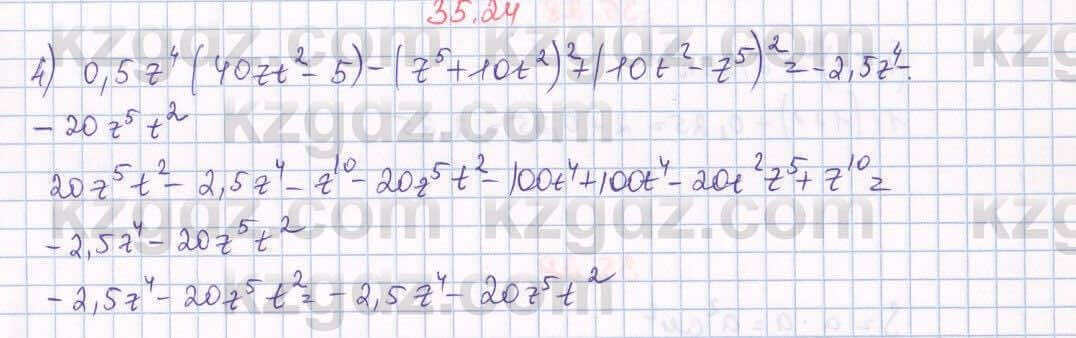 35.24
4) 0,5z⁴(40zt²-5)-(z⁵+10t²)²+(10t²-z⁵)²=-2,5z⁴-
-20z⁵t²
20z⁵t²-2,5z⁴-z¹⁰-20z⁵t²-100t⁴+100t⁴-20t²z⁵+z¹⁰=
-2,5z⁴-20z⁵t²
-2,5z⁴-20z⁵t²=-2,5z⁴-20z⁵t²
kzgdz.com
kzgdz.com
kzgdz.com
kzgdz.com